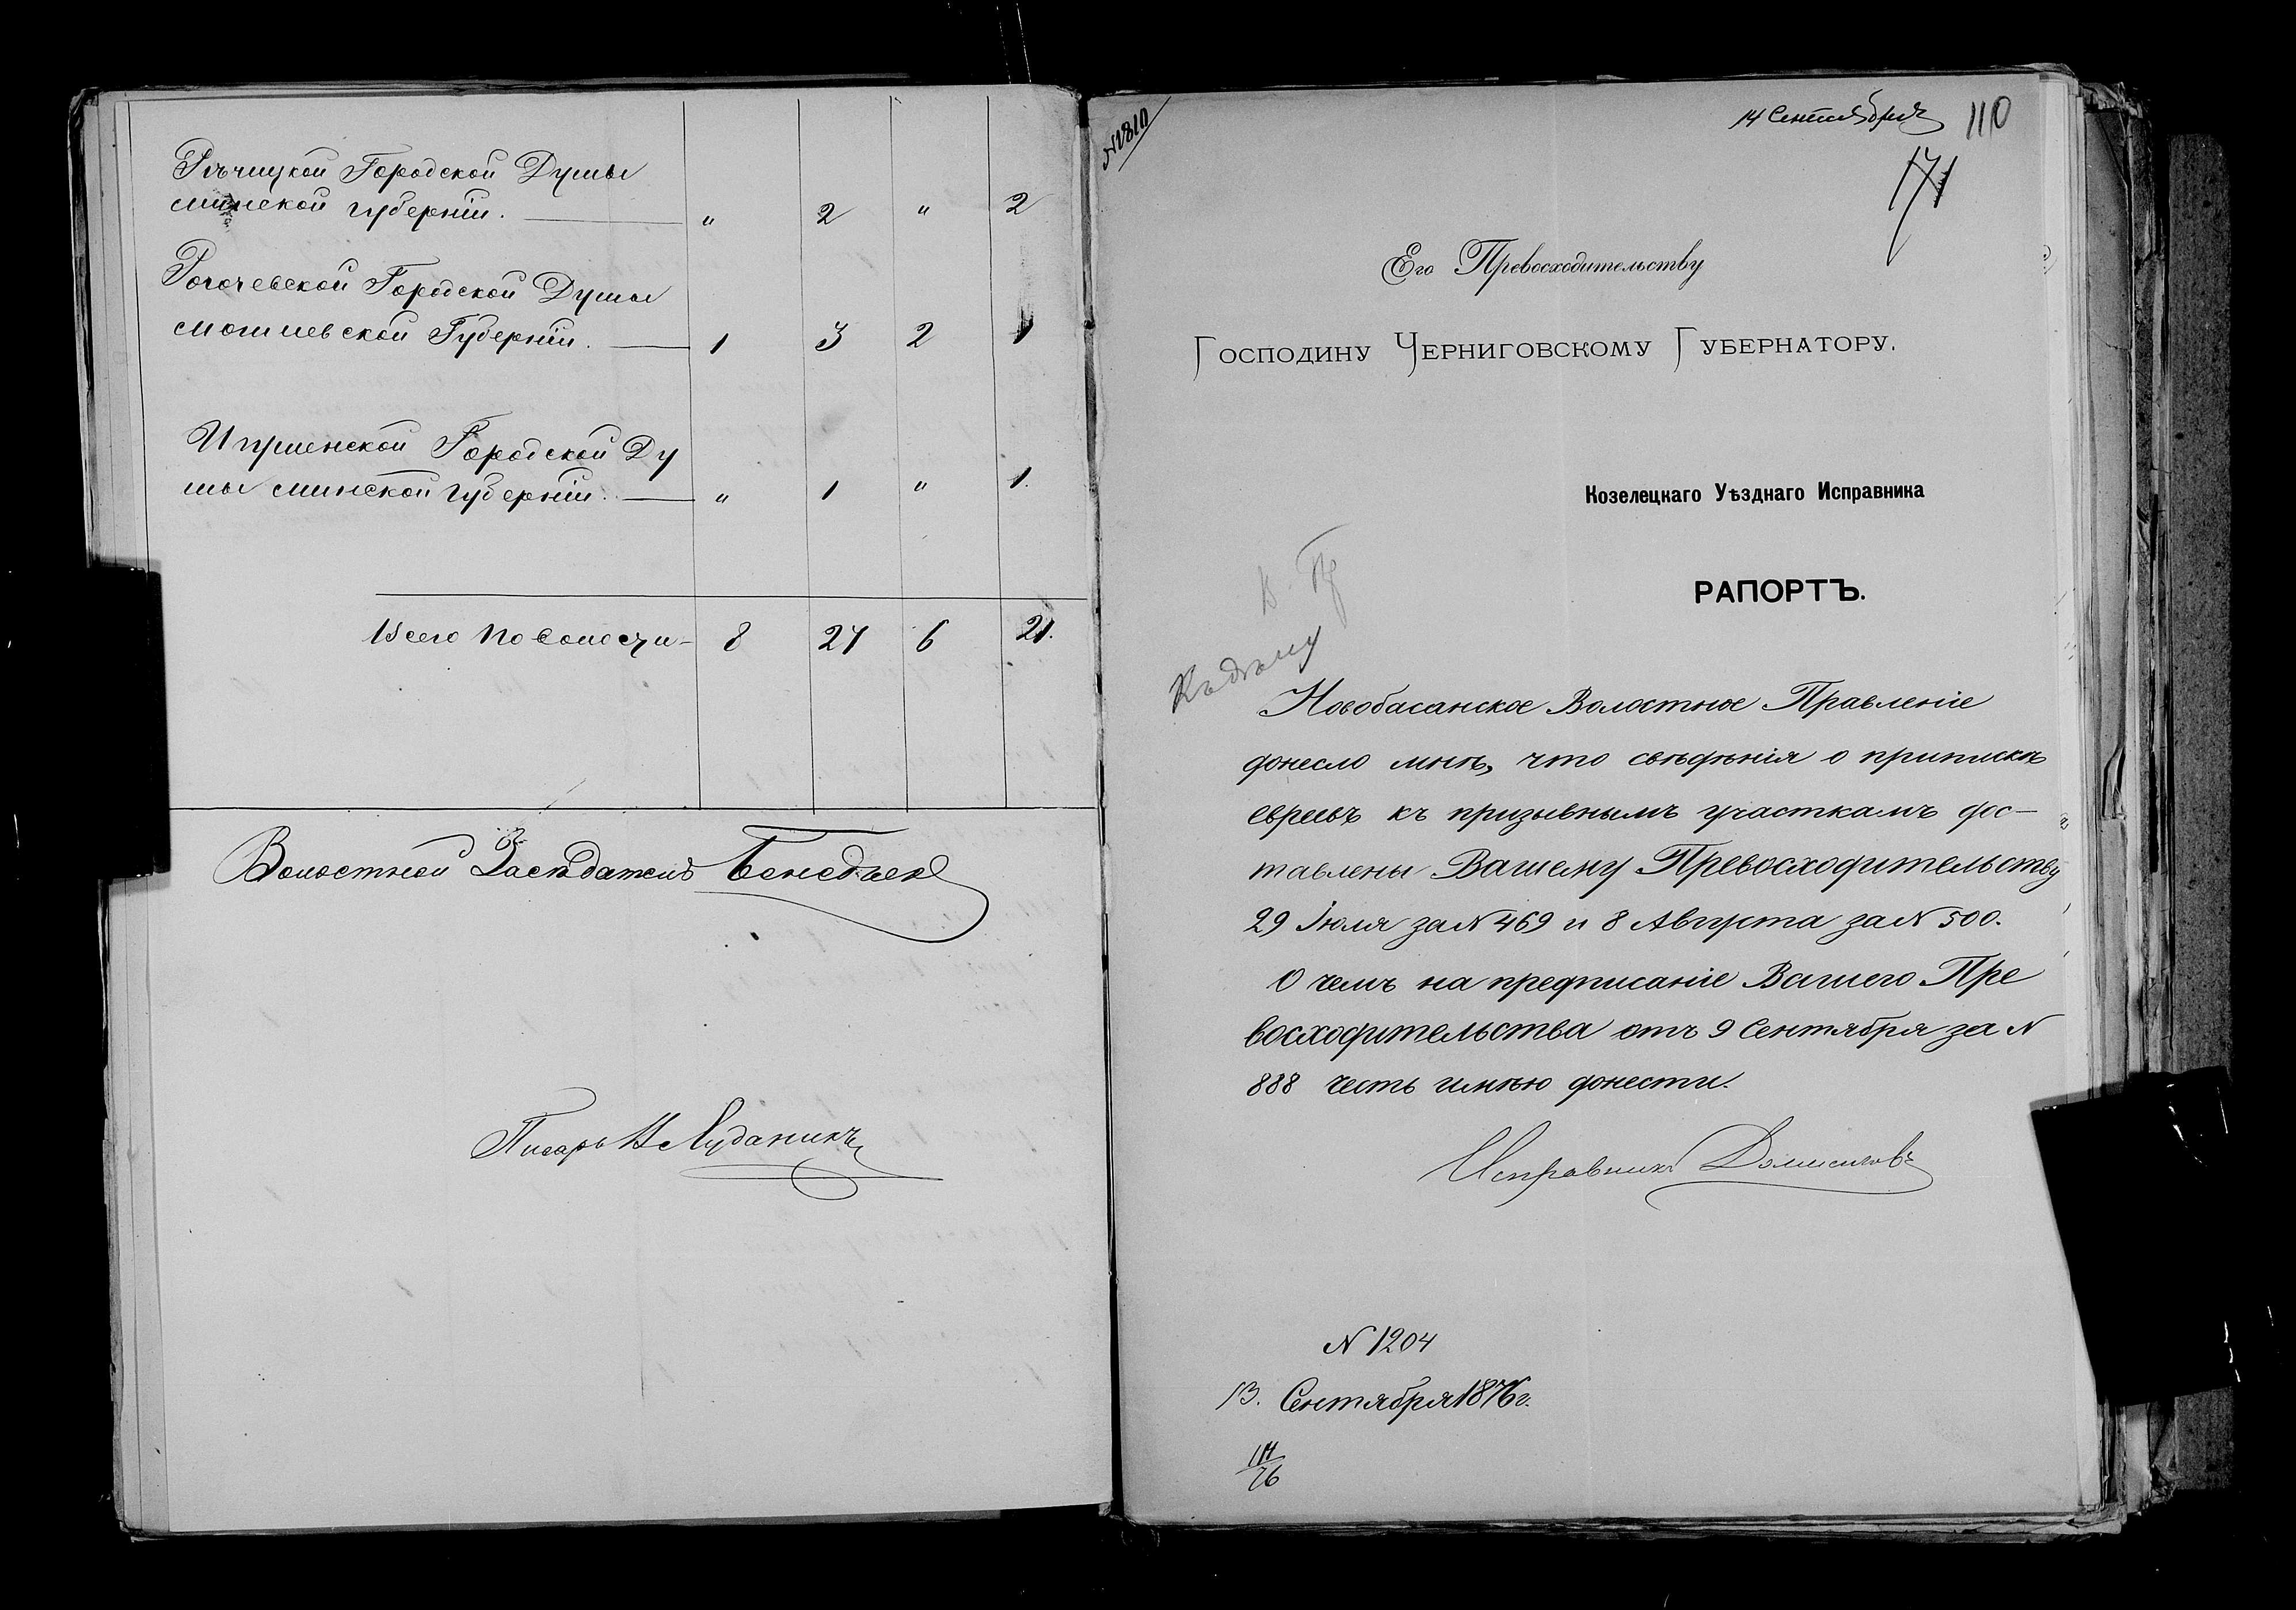 Рѣчицкой Городской Думы
минской губерніи. — " 2 " 2
Рогочевской Городской Думы
могилевской Губерніи. — 1 3 2 1
Игуменской Городской Ду
мы минской губерніи. — " 1 " 1.
Всего по волости — 8 27 6 21.
Волостной Засѣдатель
Писарь
N 1810
14 Сентября 110
171
Его Превосходительству
Господину Черниговскому Губернатору.
Козелецкаго Уѣзднаго Исправника
РАПОРТЪ.
Къ дѣлу
Новобасанское Волостное Правленіе
донесло мнѣ, что свѣдѣнія о припискѣ
евреевъ къ призывнымъ участкамъ дос-
тавлены Вашему Превосходительству
29 Іюля за N 469 и 8 Августа за N 500.
О чемъ на предписаніе Вашего Пре
восходительства отъ 9 Сентября за N
888 честь имѣю донести.
Исправникъ
N 1204
13. Сентября 1876 г.